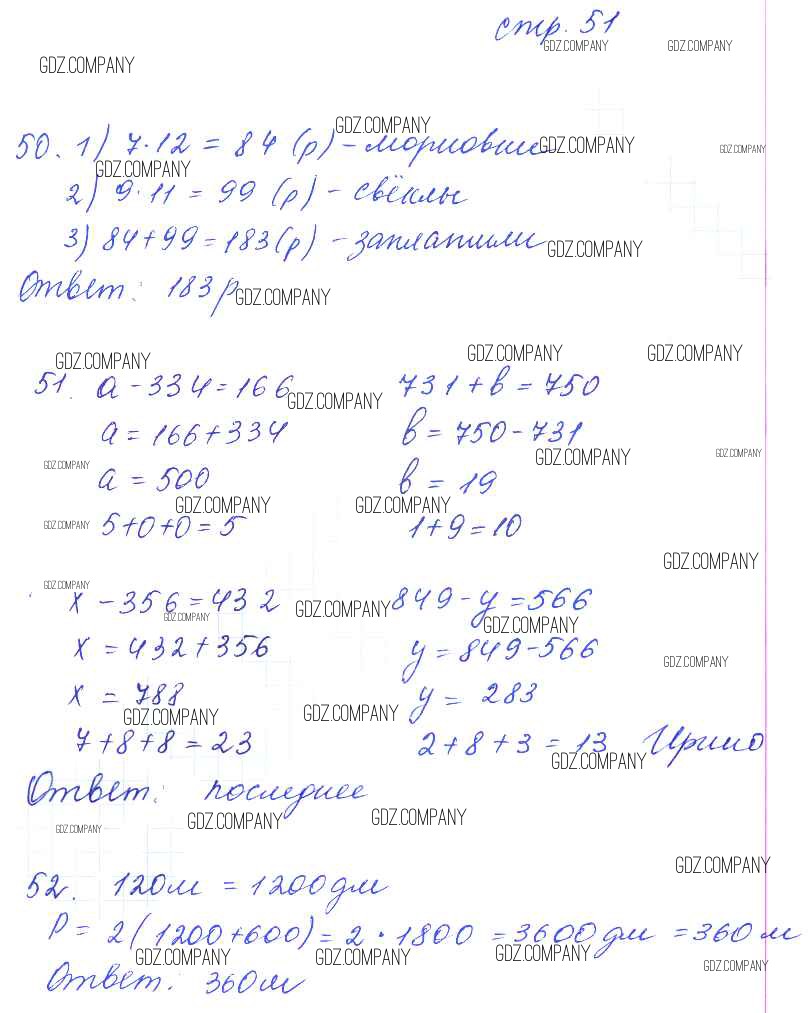 стр. 51
GDZ.COMPANY GDZ.COMPANY
GDZ.COMPANY
GDZ.COMPANY
50. 1) 7·12 = 84 (р) –
GDZ.COMPANY GDZ.COMPANY
GDZ.COMPANY
2) 9·11 = 99 (р) – свёклы
3) 84+99=183(р) – заплатили
GDZ.COMPANY
Ответ: 183 р
GDZ.COMPANY
GDZ.COMPANY GDZ.COMPANY GDZ.COMPANY
51. a – 334=166 731+b=750
GDZ.COMPANY
a=166+334 b=750-731
GDZ.COMPANY GDZ.COMPANY
GDZ.COMPANY
a = 500 b = 19
GDZ.COMPANY GDZ.COMPANY
GDZ.COMPANY
5+0+0=5 1+9=10
GDZ.COMPANY
GDZ.COMPANY
x – 356=432 849-y=566
GDZ.COMPANY GDZ.COMPANY
GDZ.COMPANY
x = 432+356 y=849-566
GDZ.COMPANY
x = 788 y = 283
GDZ.COMPANY GDZ.COMPANY
7+8+8=23 2+8+3=13
GDZ.COMPANY
Ответ: последнее
GDZ.COMPANY GDZ.COMPANY
GDZ.COMPANY
GDZ.COMPANY
52. 120м = 1200дм
P= 2(1200+600)=2·1800 =3600дм =360м
GDZ.COMPANY GDZ.COMPANY GDZ.COMPANY
GDZ.COMPANY
Ответ: 360м